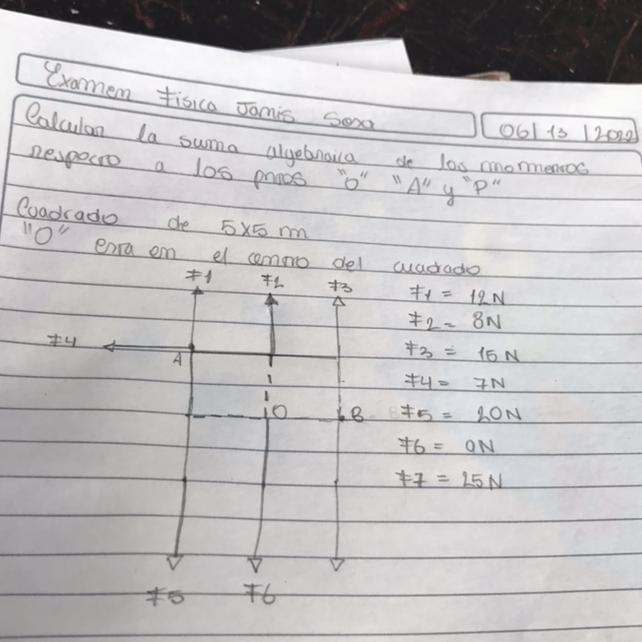 Examen Física Jamis Sosa
06/13/2022
Calcular la suma algebraica de los momentos
respecto a los pntos "O" "A" y "P"
Cuadrado de 5x5 m
"O" esta en el centro del cuadrado
F1 F2 F3
F1 = 12N
F2 = 8N
F4 A
F3 = 15N
F4 = 7N
O B
F5 = 20N
F6 = 9N
F7 = 25N
F5 F6